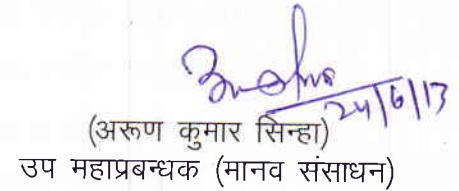 24/6/13
(अरूण कुमार सिन्हा)
उप महाप्रबन्धक (मानव संसाधन)